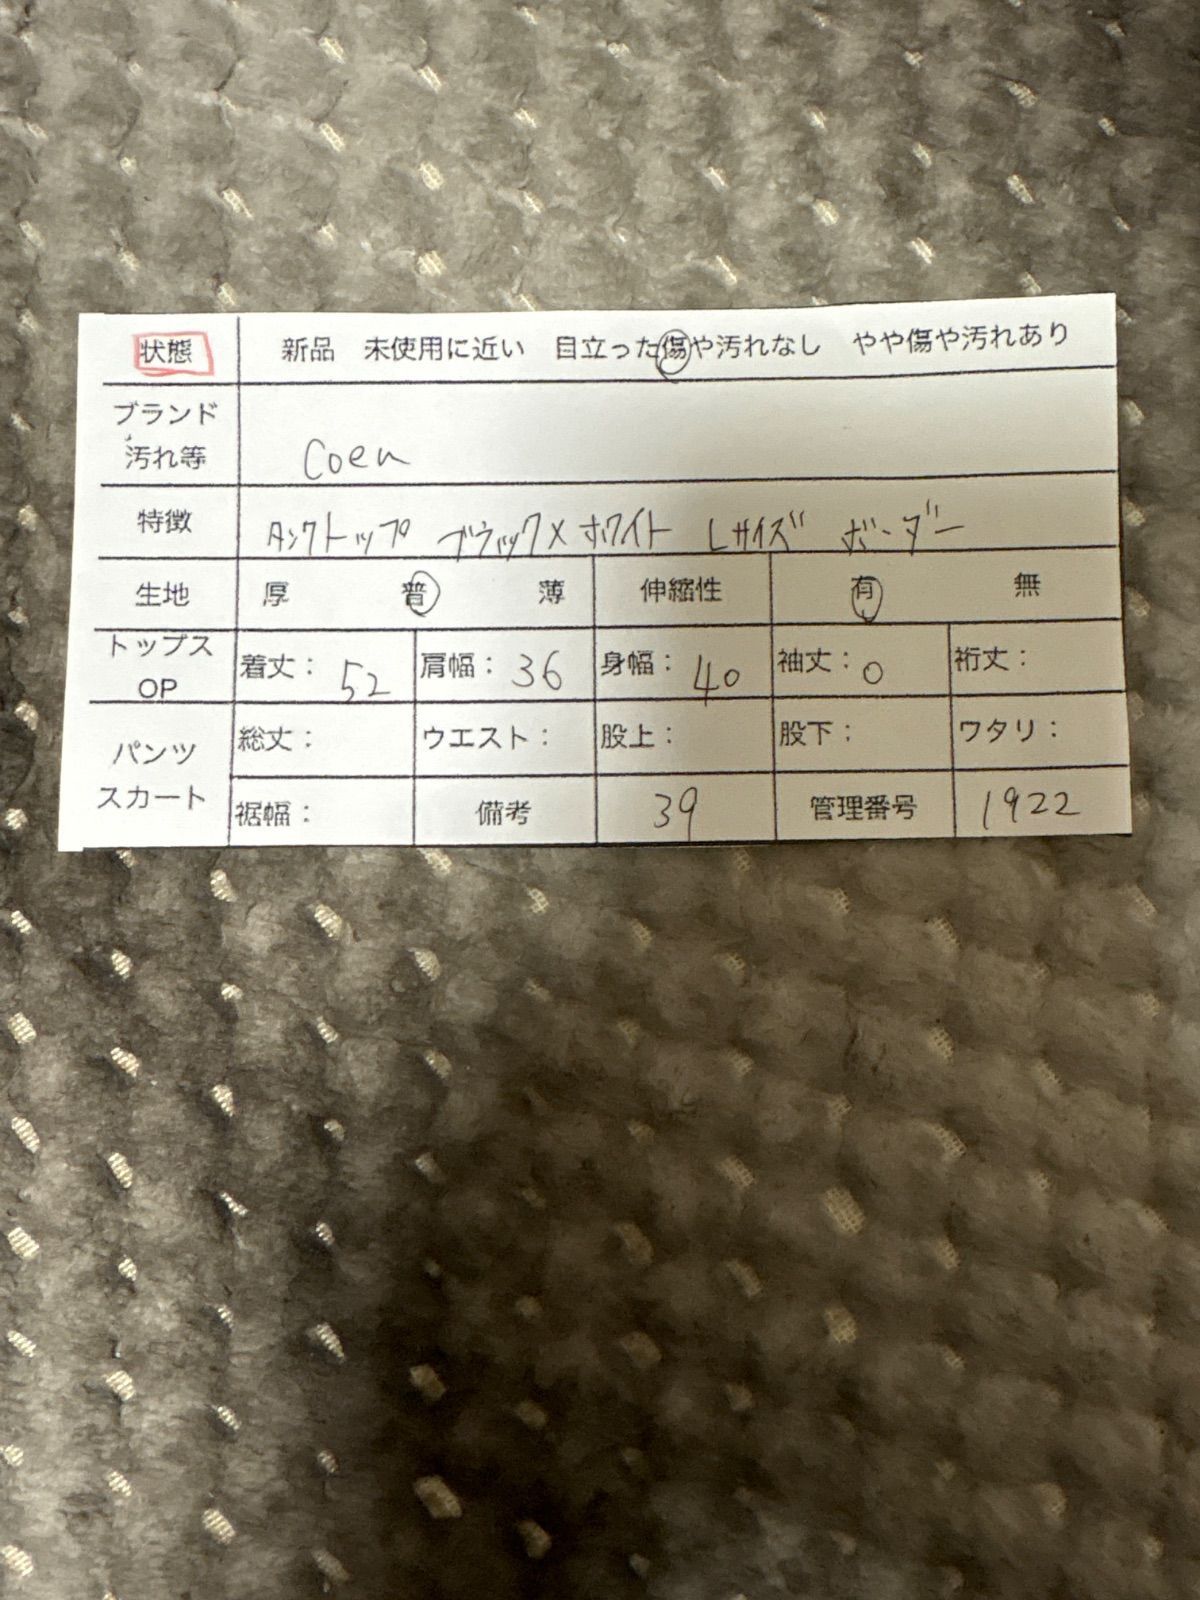 状態 新品 未使用に近い 目立った傷や汚れなし やや傷や汚れあり
ブランド
汚れ等 coen
特徴 タンクトップ ブラック×ホワイト Lサイズ ボーダー
生地 厚 普 薄 伸縮性 有 無
トップス
OP 着丈: 52 肩幅: 36 身幅: 40 袖丈: 0 裄丈:
パンツ
スカート 総丈: ウエスト: 股上: 股下: ワタリ:
裾幅: 備考 39 管理番号 1922